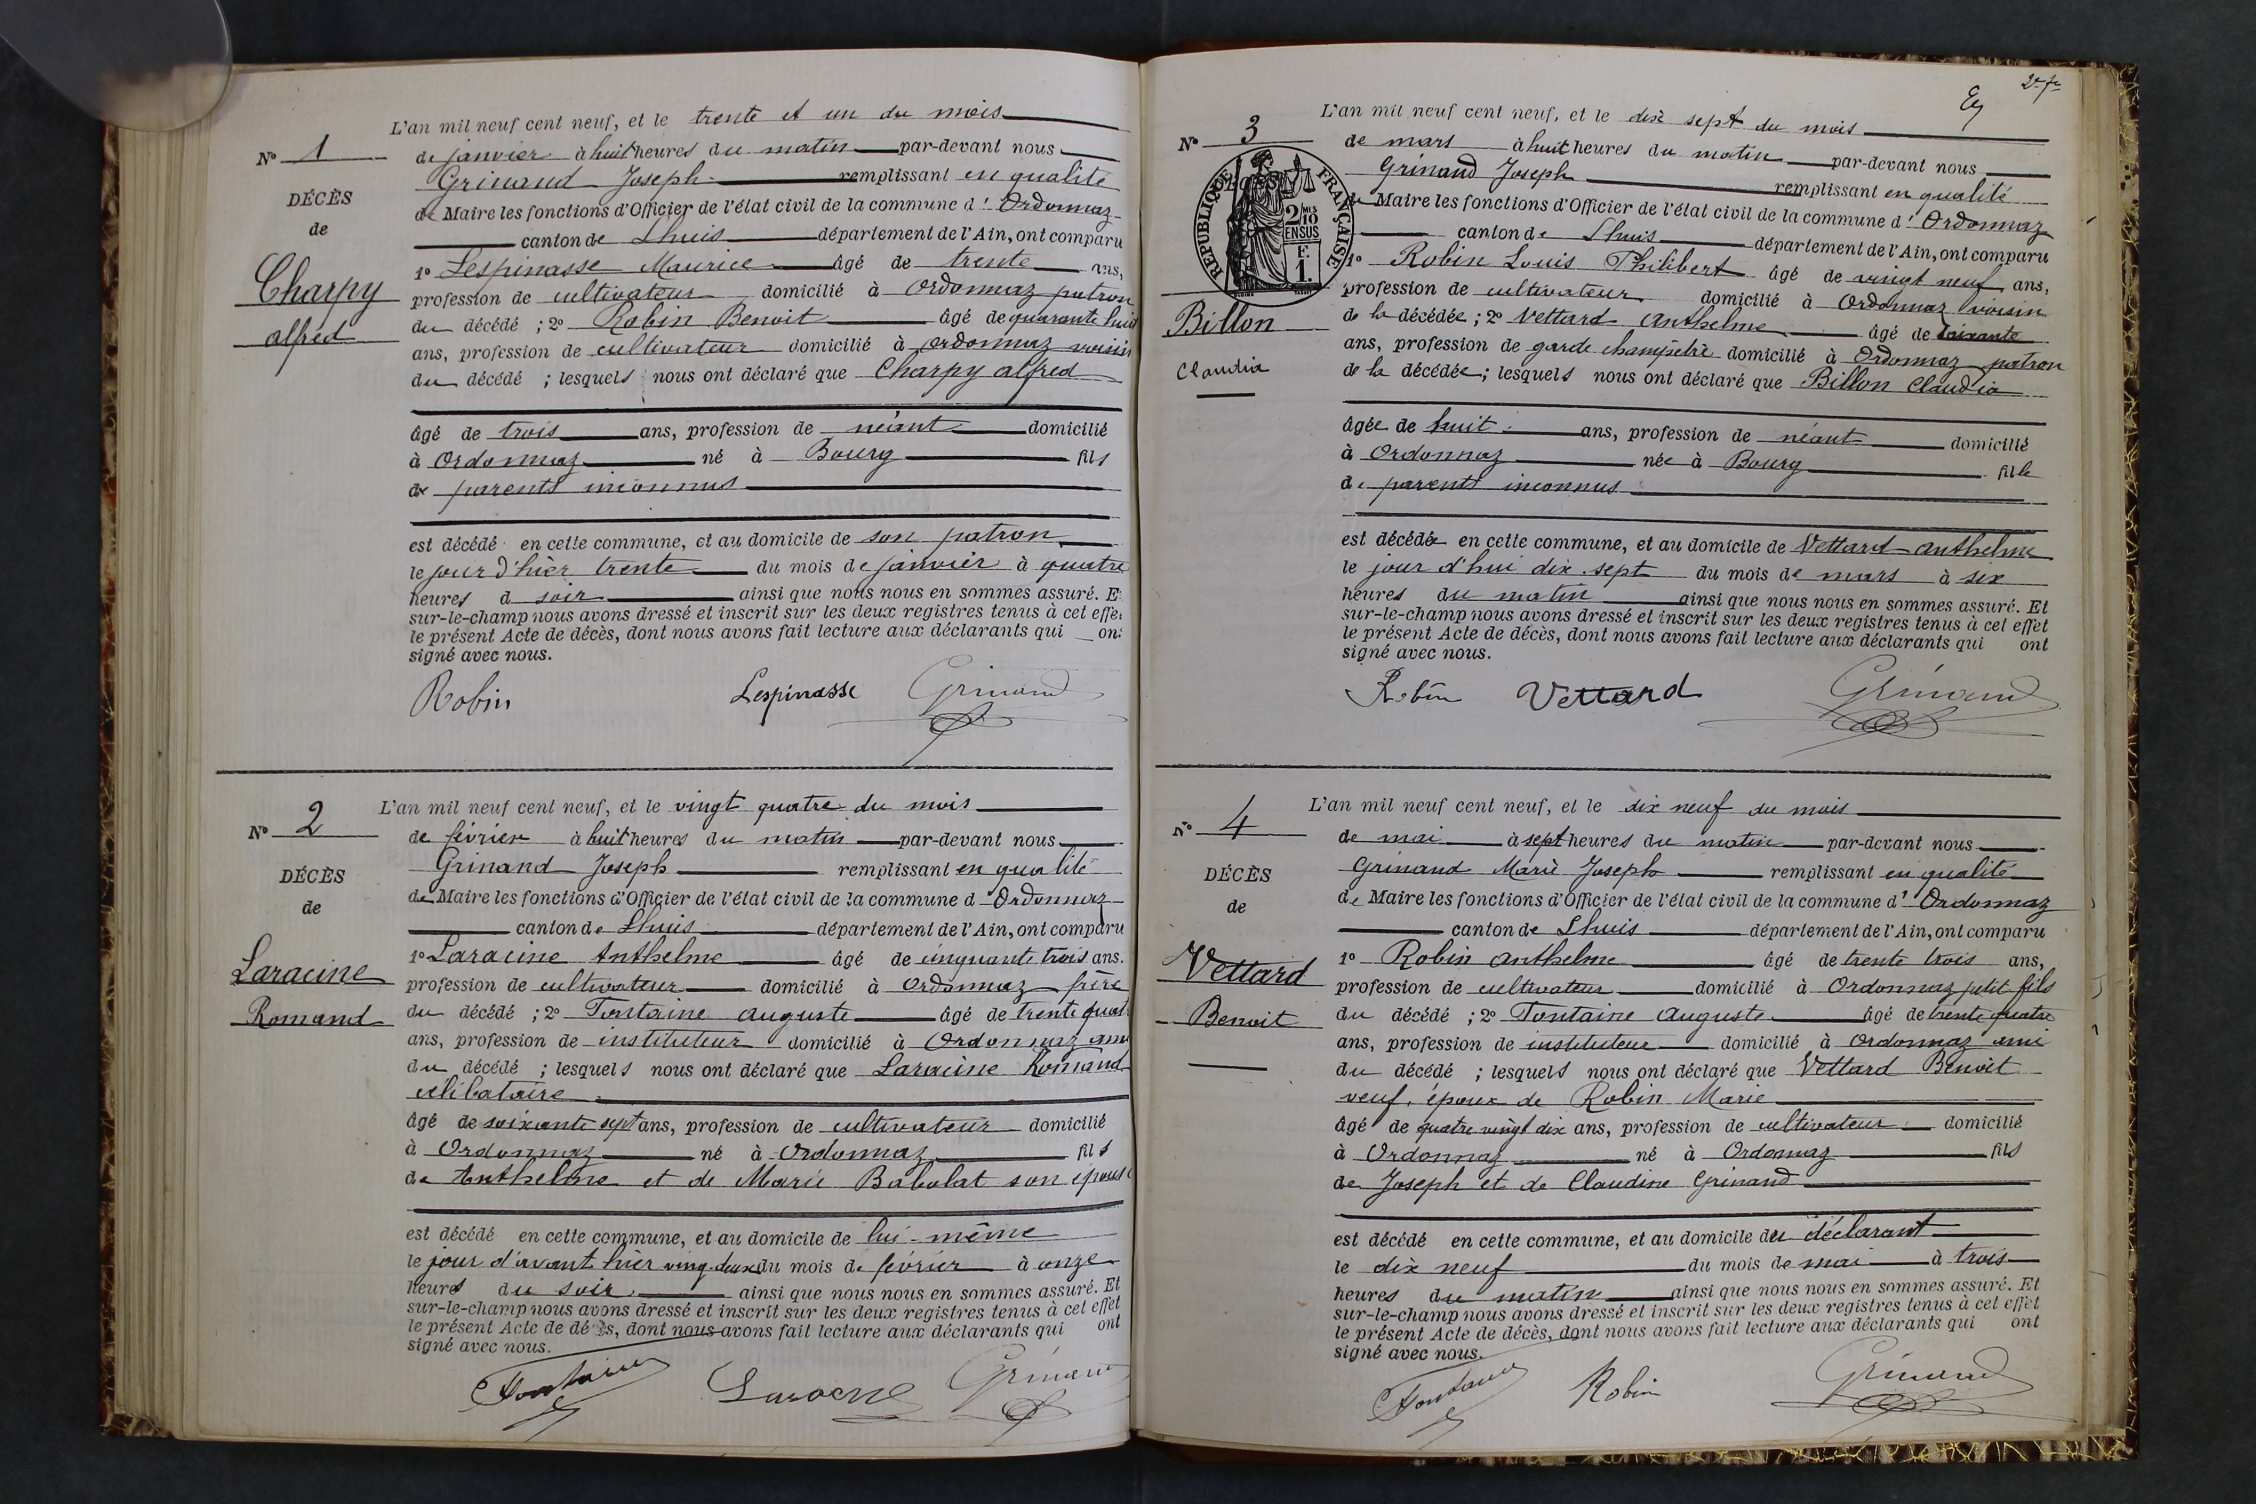 L'an mil neuf cent neuf, et le trente et un du mois
N° 1
de janvier à huit heures du matin par-devant nous
Grinand Joseph remplissant en qualité
DÉCÈS
de Maire les fonctions d'Officier de l'état civil de la commune d' Ordonnaz
de
canton de Lhuis département de l'Ain, ont comparu
1° Lespinasse Maurice âgé de trente ans,
Charpy
profession de cultivateur domicilié à Ordonnaz patron
alfred
du décédé ; 2° Robin Benoit âgé de quarante huit
ans, profession de cultivateur domicilié à ordonnaz voisin
du décédé ; lesquels nous ont déclaré que Charpy alfred
âgé de trois ans, profession de néant domicilié
à Ordonnaz né à Bourg fils
de parents inconnus
est décédé en cette commune, et au domicile de son patron
le jour d'hier trente du mois de janvier à quatre
heures d soir ainsi que nous nous en sommes assuré. E
sur-le-champ nous avons dressé et inscrit sur les deux registres tenus à cet effe
le présent Acte de décès, dont nous avons fait lecture aux déclarants qui on
signé avec nous.
Robin Lespinasse Grinand
L'an mil neuf cent neuf, et le vingt quatre du mois
N° 2
de février à huit heures du matin par-devant nous
Grinand Joseph remplissant en qualité
DÉCÈS
de Maire les fonctions d'Officier de l'état civil de la commune d Ordonnaz
de
canton de Lhuis département de l'Ain, ont comparu
1° Laracine Anthelme âgé de cinquante trois ans.
Laracine
profession de cultivateur domicilié à Ordonnaz frère
Romand
du décédé ; 2° Fontaine auguste âgé de trente quat
ans, profession de instituteur domicilié à Ordonnaz ami
du décédé ; lesquels nous ont déclaré que Laracine Romand
célibataire
âgé de soixante sept ans, profession de cultivateur domicilié
à Ordonnaz né à Ordonnaz fils
de Anthelme et de Marie Babolat son épouse
est décédé en cette commune, et au domicile de lui-même
le jour d'avant hier ving-deux du mois de février à onze
heures du soir ainsi que nous nous en sommes assuré. Et
sur-le-champ nous avons dressé et inscrit sur les deux registres tenus à cet effet
le présent Acte de décès, dont nous avons fait lecture aux déclarants qui ont
signé avec nous.
Fontaine Laracine Grinand
2e fe
L'an mil neuf cent neuf, et le dix sept du mois
N° 3
de mars à huit heures du matin par-devant nous
Grinand Joseph remplissant en qualité
RÉPUBLIQUE FRANÇAISE
2/10 EN SUS
F. 1.
de Maire les fonctions d'Officier de l'état civil de la commune d' Ordonnaz
canton de Lhuis département de l'Ain, ont comparu
1° Robin Louis Philibert âgé de vingt neuf ans,
profession de cultivateur domicilié à Ordonnaz voisin
Billon
de la décédée ; 2° Vettard Anthelme âgé de soixante
ans, profession de garde champêtre domicilié à Ordonnaz patron
Claudia
de la décédée ; lesquels nous ont déclaré que Billon Claudia
âgée de huit ans, profession de néant domicilié
à Ordonnaz née à Bourg fille
de parents inconnus
est décédée en cette commune, et au domicile de Vettard anthelme
le jour d'hui dix-sept du mois de mars à six
heures du matin ainsi que nous nous en sommes assuré. Et
sur-le-champ nous avons dressé et inscrit sur les deux registres tenus à cet effet
le présent Acte de décès, dont nous avons fait lecture aux déclarants qui ont
signé avec nous.
Robin Vettard Grinand
L'an mil neuf cent neuf, et le dix neuf du mois
N° 4
de mai à sept heures du matin par-devant nous
Grinand Marie Joseph remplissant en qualité
DÉCÈS
de Maire les fonctions d'Officier de l'état civil de la commune d' Ordonnaz
de
canton de Lhuis département de l'Ain, ont comparu
1° Robin anthelme âgé de trente trois ans,
Vettard
profession de cultivateur domicilié à Ordonnaz petit fils
Benoit
du décédé ; 2° Fontaine Auguste âgé de trente quatre
ans, profession de instituteur domicilié à Ordonnaz ami
du décédé ; lesquels nous ont déclaré que Vettard Benoit
veuf, époux de Robin Marie
âgé de quatre vingt dix ans, profession de cultivateur domicilié
à Ordonnaz né à Ordonnaz fils
de Joseph et de Claudine Grinand
est décédé en cette commune, et au domicile du déclarant
le dix neuf du mois de mai à trois
heures du matin ainsi que nous nous en sommes assuré. Et
sur-le-champ nous avons dressé et inscrit sur les deux registres tenus à cet effet
le présent Acte de décès, dont nous avons fait lecture aux déclarants qui ont
signé avec nous.
Fontaine Robin Grinand